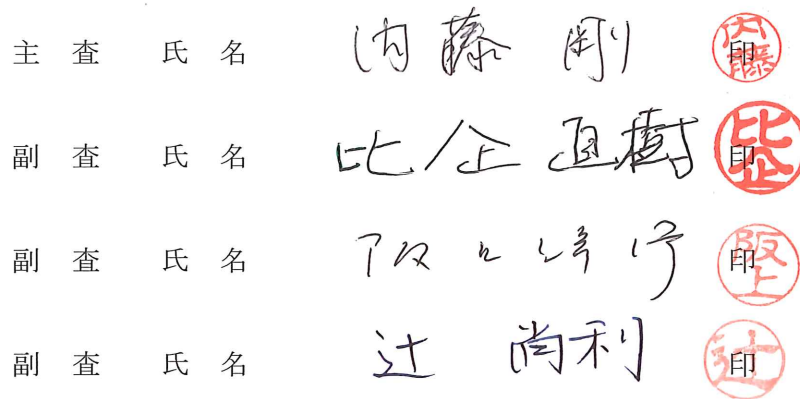 主 査 氏 名 内藤 剛 印 内藤
副 査 氏 名 比企 直樹 印 比企
副 査 氏 名 阪上 印 阪上
副 査 氏 名 辻 尚利 印 辻